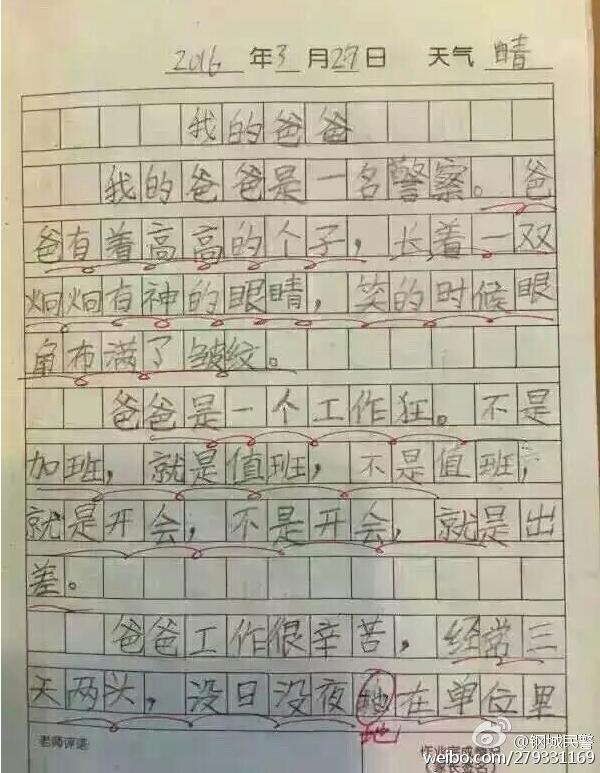 2016 年 3 月 27 日 天气 晴
我的爸爸
我的爸爸是一名警察。爸
爸有着高高的个子，长着一双
炯炯有神的眼睛，笑的时候眼
角布满了皱纹。
爸爸是一个工作狂。不是
加班，就是值班，不是值班，
就是开会，不是开会，就是出
差。
爸爸工作很辛苦，经常三
天两头，没日没夜地在单位里
地
老师评语
作业完成情况
（家长签名）
@钢城民警
weibo.com/279331169